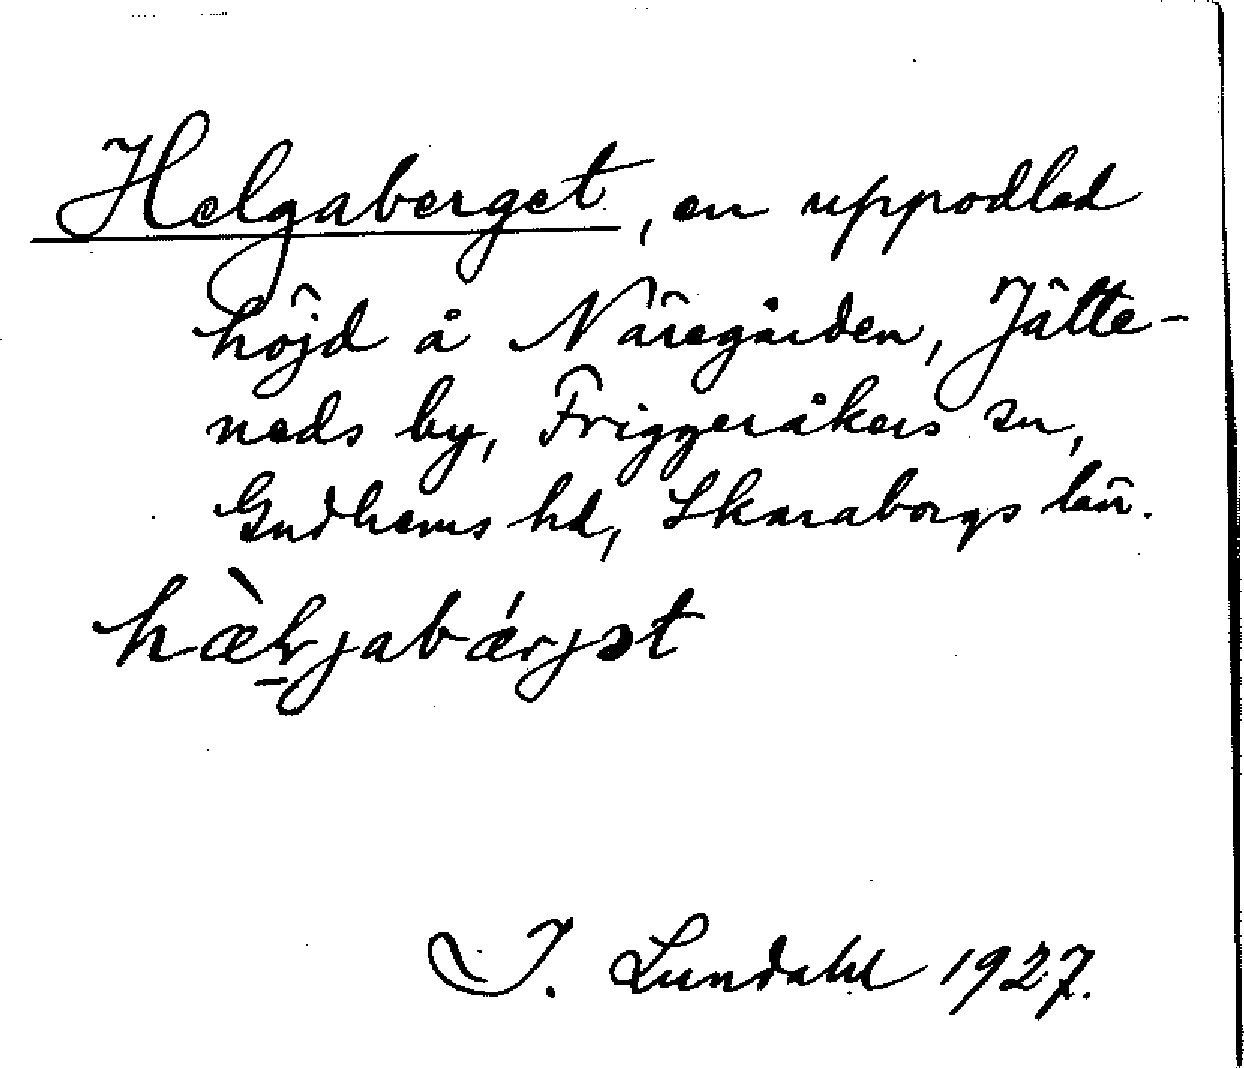 Helgaberget, en uppodlad
höjd å Näregården, Jätte-
neds by, Friggeråkers sn,
Gudhems hd, Skaraborgs län.
hæ̀ḷjabǽrjət
I. Lundahl 1927.